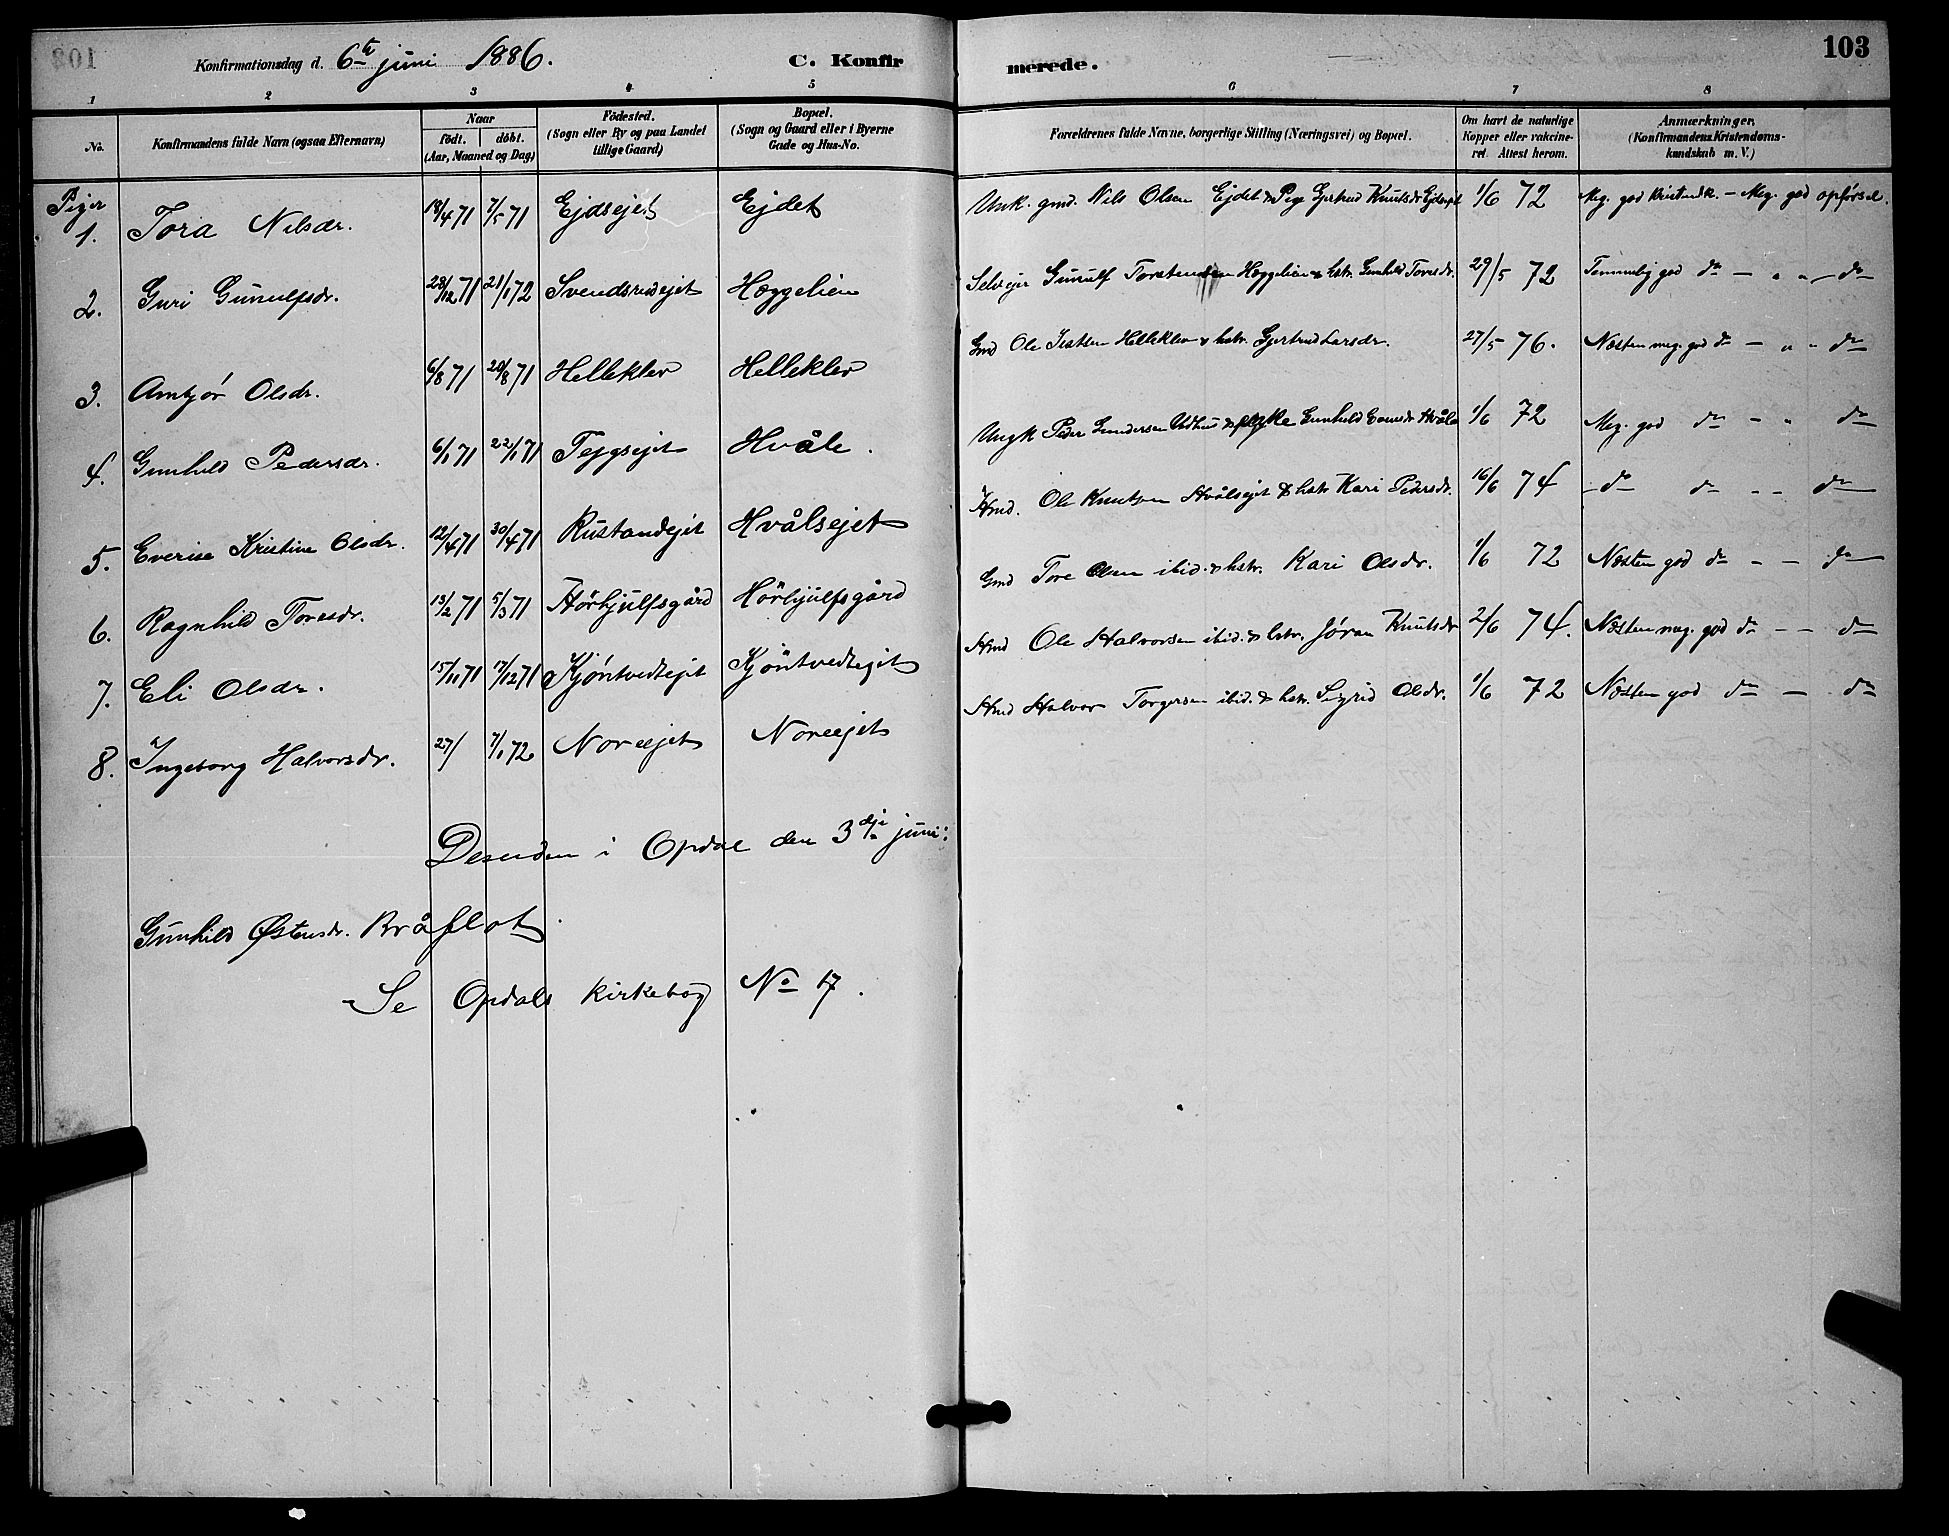 Konfirmationsdag d. 6te juni 1886. C. Konfirmerede. 103
1 2 3 4 5 6 7 8
No. Konfirmandens fulde Navn (ogsaa Efternavn) Naar født. døbt. (Aar, Maaned og Dag) Fødested. (Sogn eller By og paa Landet tillige Gaard) Bopæl. (Sogn og Gaard eller i Byerne Gade og Hus-No. Forældrenes fulde Navne, borgerlige Stilling (Næringsvei) og Bopæl. Om havt de naturlige Kopper eller vaccineret. Attest herom. Anmærkninger, (Konfirmandens Kristendomskundskab m. V.)
Piger
1. Tora Nilsdr. 18/4 71 7/5 71 Ejdsejet Ejdet Unk. gmd. Nils Olsen Ejdet & Pige Gjertrud Knutsdr Ejdsejet 1/6 72 Meg. god Kristendk. - Meg. god opførsel.
2. Guri Gunulfsdr. 28/12 71 21/1 72 Svendsrudejet Hæggelien Selvejer Gunulf Torstensen Hæggelien & hstr. Gunhild Toresdr. 29/5 72 Temmelig god do - " " - do
3. Amtjør Olsdr. 6/8 71 20/8 71 Helleklev Helleklev Gmd Ole Helleklev & hstr. Gjertrud Larsdr. 27/5 76. Næsten meg. god do - " " do
4. Gunhild Pedersdr. 6/1 71 22/1 71 Tejgsejet Hvåle. Ungk Peder Gundersen & Gunhild Hvåle 1/6 72 Meg. god do - " do
5. Everise Kristine Olsdr. 12/4 71 30/4 71 Rustandejet Hvålsejet Hmd. Ole Knutsen Hvålsejet & hstr Kari Pedersdr. 16/6 74 - do do - - do
6. Ragnhild Toresdr. 13/2 71 5/3 71 Hörhjulfsgård Hörhjulfsgård Gmd Tore Olsen ibid. & hstr. Kari Olsdr. 1/6 72 Næsten god do - - do
7. Eli Olsdr. 15/11 71 17/12 71 Kjöntvedtejet Kjöntvedtejet Hmd Ole Halvorsen ibid. & hstr. Jøran Knutsdr 2/6 74. Næsten meg. god do - - do
8. Ingeborg Halvorsdr. 27/ 7/1 72 Noreejet Noreejet Hmd Halvor Torgersen ibid. & hstr. Sigrid Olsdr. 1/6 72 Næsten god do - do
Desuden i Opdal den 3dje juni:
Gunhild Østensdr. Bråflot
Se Opdals Kirkebog No 17.